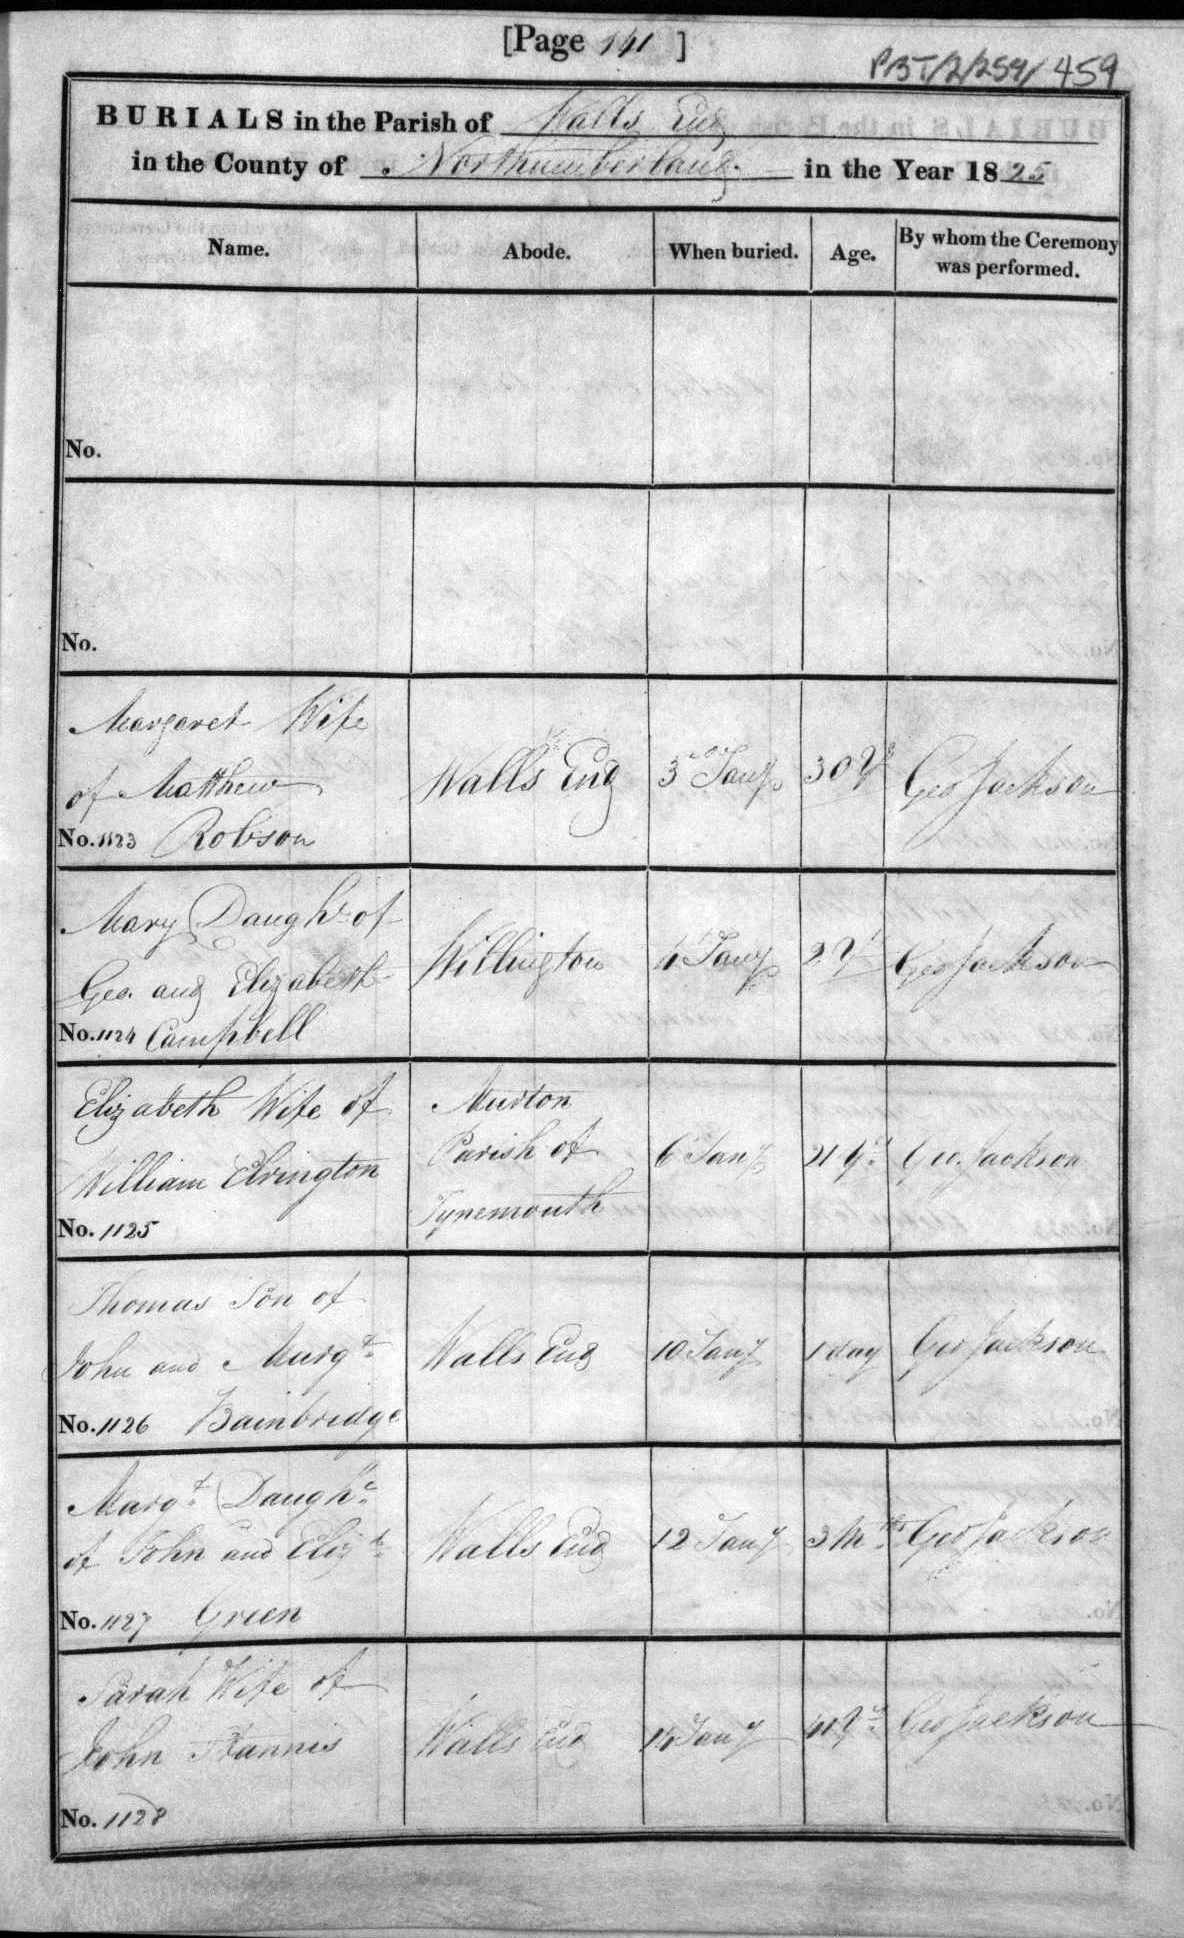 [Page 141 ]
BURIALS in the Parish of Walls End
in the County of Northumberland in the Year 1825
Name. Abode. When buried. Age. By whom the Ceremony was performed.
No.
No.
Margaret Wife
of Matthew
No. 1123 Robson
Walls End
3rd Jany
30 Ys
Geo Jackson
Mary Daughr of
Geo. and Elizabeth
No. 1124 Campbell
Willington
4 Jany
2 Ys
Geo Jackson
Elizabeth Wife of
William Elrington
No. 1125
Murton
Parish of
Tynemouth
6 Jany
21 Ys
Geo. Jackson
Thomas Son of
John and Margt
No. 1126 Bainbridge
Walls End
10 Jany
1 day
Geo Jackson
Margt Daughr
of John and Elizth
No. 1127 Green
Walls End
12 Jany
3 Mths
Geo Jackson
Sarah Wife of
John
No. 1128
Walls End
14 Jany
41 Ys
Geo Jackson